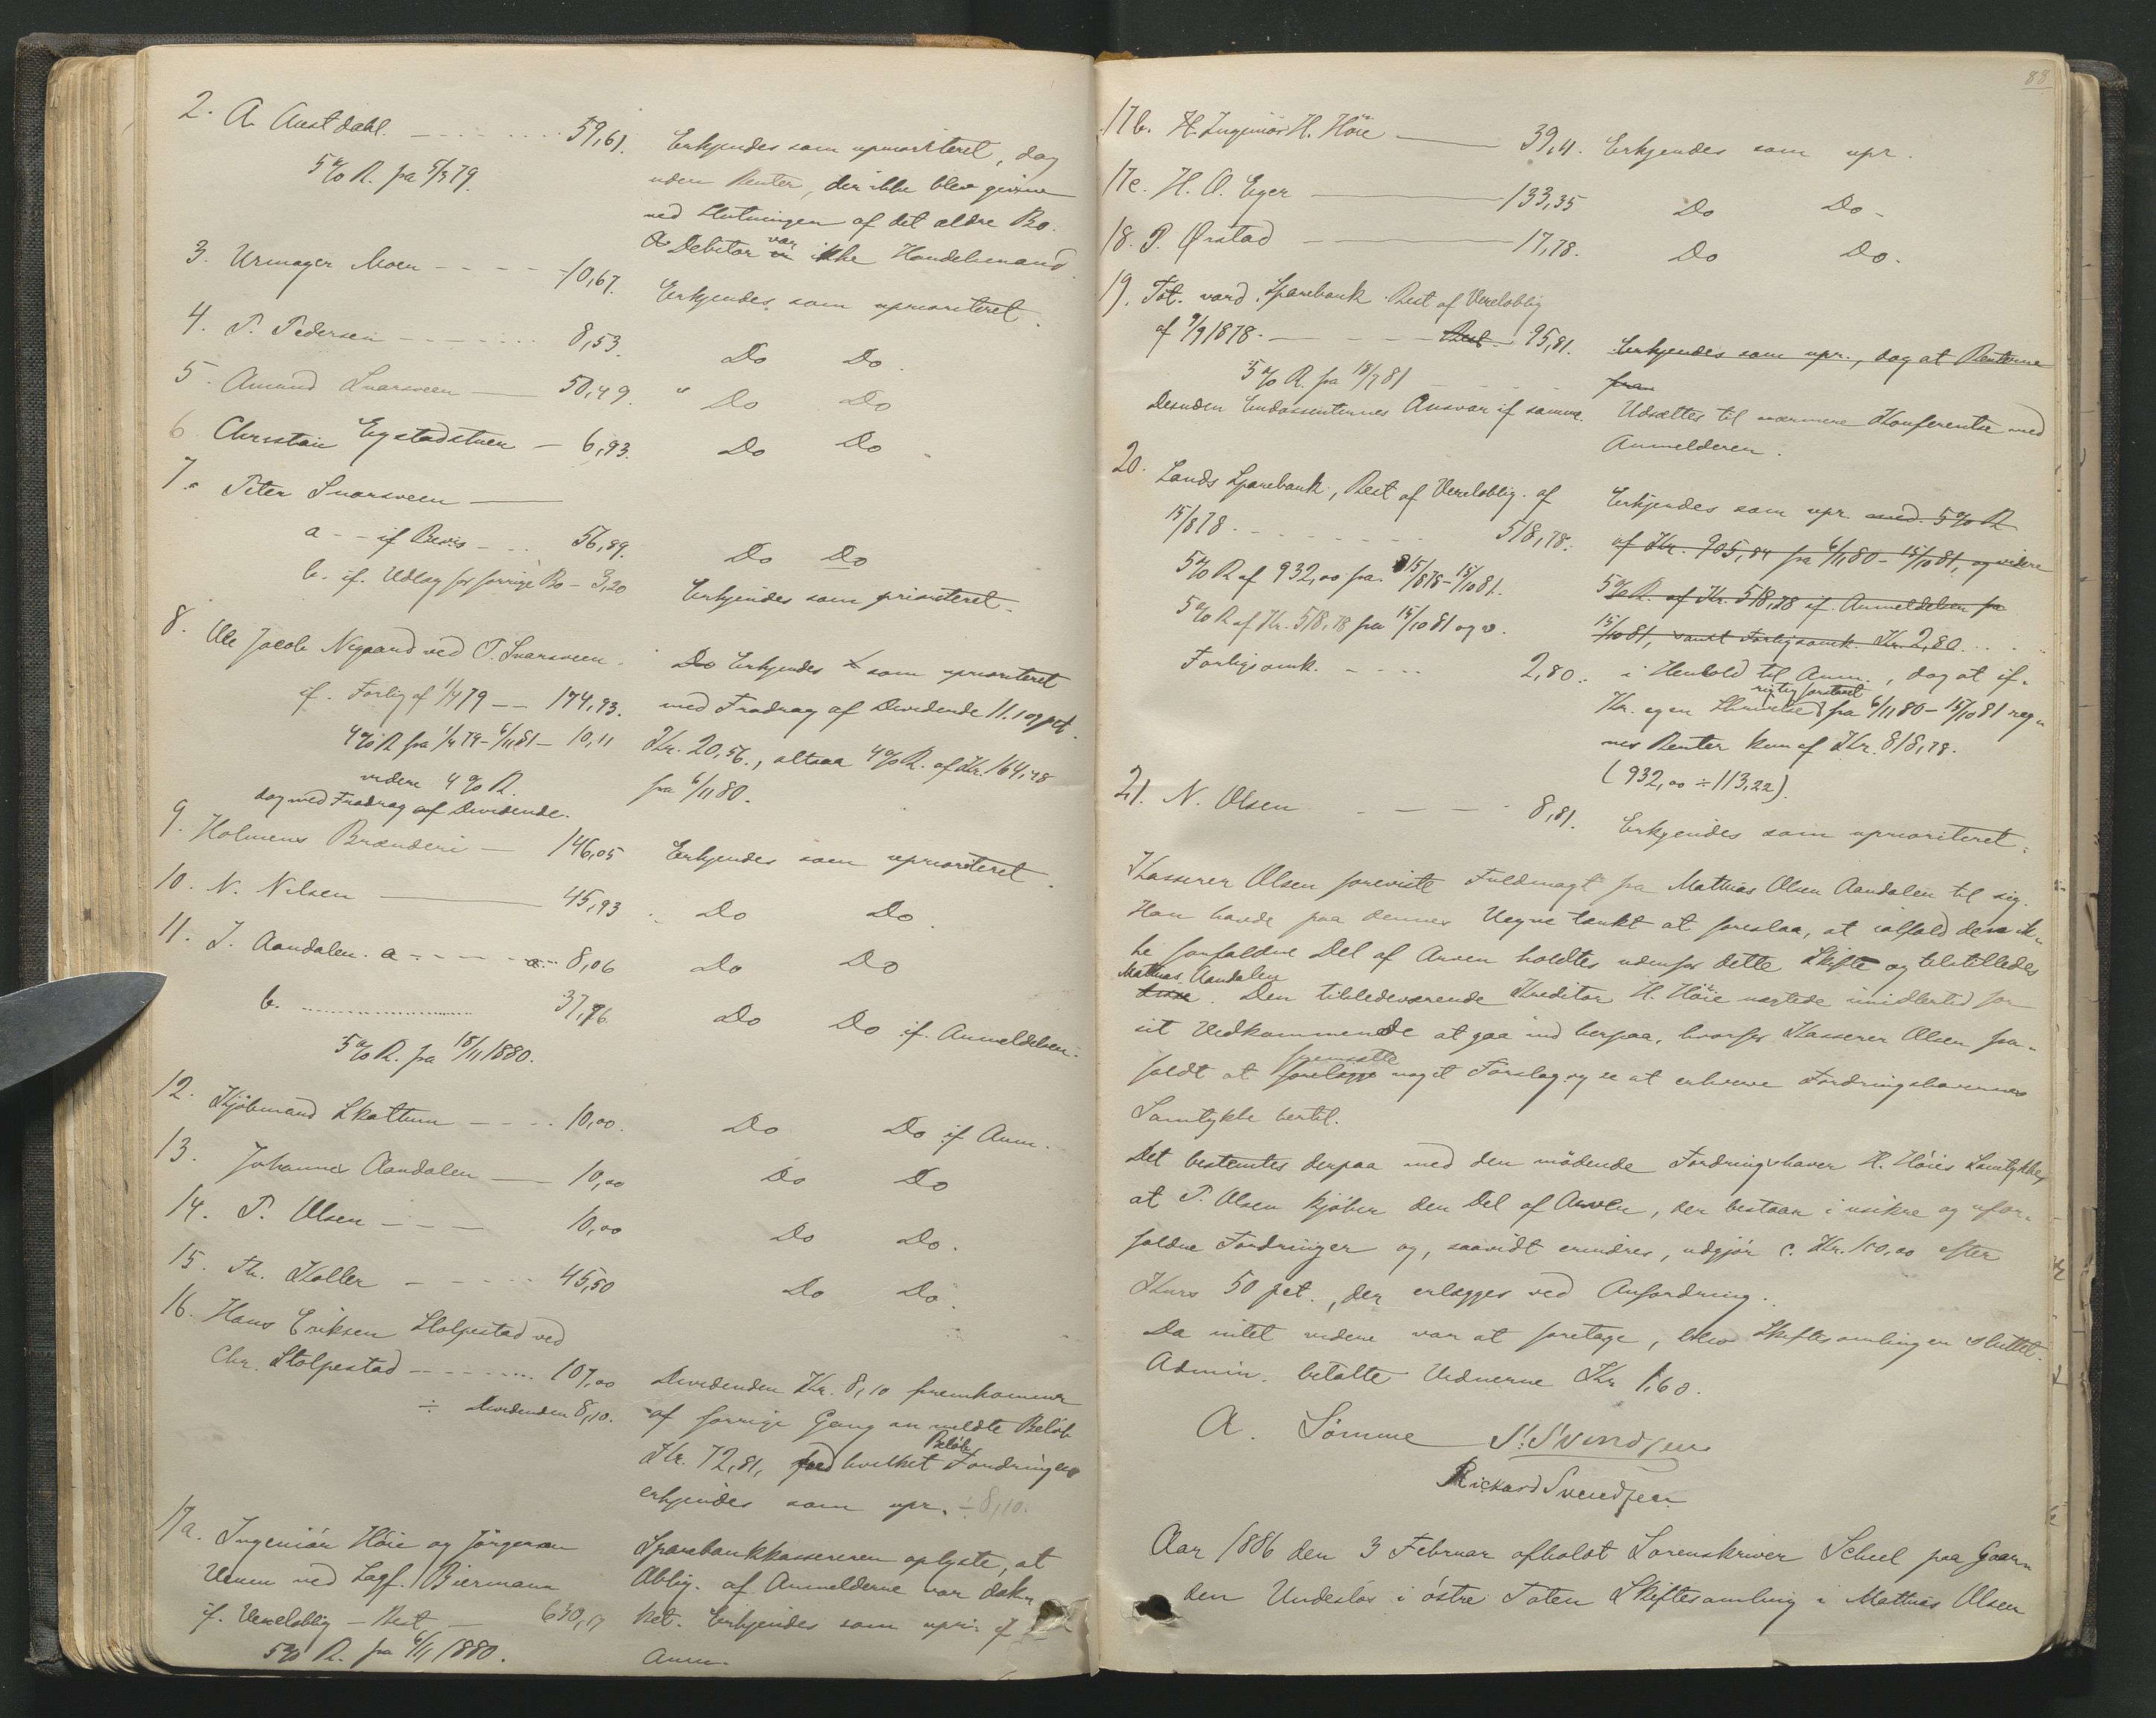 2. A. Austdahl. - - - - 59,61. Erkjendes som uprioriteret, dog
5% R. fra 5/3 79. uden Renter, der ikke blev givne
ved Slutningen af det ældre Bo.
Debitor var ikke Handelsmand.
3. Urmager Moen - - - - 10,67. Erkjendes som uprioriteret.
4. P. Pedersen - - - - 8,53. Do Do.
5. Amund Svarsveen — 50,49. " Do Do
6. Christian Egstadstuen — 6,93. Do Do
7. Peter Svarsveen —
a - - if Bevis - .. 56,89. Do Do
b. if. Udlæg for forrige Bo - 3,20 Erkjendes som prioriteret.
8. Ole Jacob Nygaard ved P. Svarsveen. Do Erkjendes som uprioriteret
if. Forlig af 1/4 79 - - 174,93. med Fradrag af Dividende 11.109 pct.
4% R fra 1/4 79 - 6/11 81 - 10,11 Kr. 20,56., altsaa 4% R. af Kr. 164,48
videre 4% R. fra 6/11 80.
dog med Fradrag af Dividende.
9. Holmens Brænderi — 146,05 Erkjendes som uprioriteret.
10. N. Nilsen — 45,93 Do Do.
11. J. Aandalen. a - - - - 8,06 Do Do
b. ........ 37,76. Do Do if. Anmeldelsen.
5% R. fra 18/11 1880.
12. Kjøbmand Skattum - - - - 10,00. Do Do if Anm.
13. Johannes Aandalen — 10,00 Do Do
14. P. Olsen - - - 10,00 Do Do.
15. Th. Koller - - - - 45,50 Do Do.
16. Hans Eriksen Stolpestad ved
Chr. Stolpestad - - - - 107,00 Dividenden Kr. 8,10 fremkommer
÷ Dividenden 8,10. af forrige Gang anmeldte Beløb
Kr. 72,81, hvilket Beløb Fordringen
erkjendes som upr. ÷ 8,10.
17a. Ingeniør Höie og Jörgensen
ved Sagf. Biermann Sparebankkassereren oplyste, at
if. Vexeloblig - Rest - 630,17 Oblig. af Anmelderne var dæk-
5% R. fra 6/11 1880. ket. Erkjendes som upr. if
Anm.
88
17b. Ingeniör H. Höie — 39,41. Erkjendes som upr.
17c. H. O. Eger — 133,35 Do Do -
18. P. Ørstad — 17,78. Do Do.
19. Tot. vard. Sparebank Rest af Vexeloblig
af 9/9 1878. - - - Rest 95,81. Erkjendes som upr., dog at Renterne
5% R. fra 18/7 81 fra
Desuden Endossenternes Ansvar if samme. Udsættes til nærmere Konferentse med
Anmelderen.
20. Lands Sparebank, Rest af Vexeloblig. af Erkjendes som upr. med 5% R
15/8 78. - - - - 518,78. af Kr. 905,84 fra 6/11 80 - 15/10 81, og videre
5% R af 932,00 fra 15/8 78 - 15/10 81. 5% R. af Kr. 518,78 if. Anmeldelsen fra
5% R af Kr. 518,78 fra 15/10 81 og v. 15/10 81, samt Forligsomk. Kr. 2,80....
Forligsomk. - - - - 2,80. i Henhold til Anm., dog at if.
Kr. egen Skrivelse rigtig forstaaet fra 6/11 80 - 15/10 81 reg-
nes Renter kun af Kr. 818,78.
(932,00 ÷ 113,22).
21. N. Olsen - - - 8,81. Erkjendes som uprioriteret.
Kasserer Olsen foreviste Fuldmagt fra Mathias Olsen Aandalen til sig.
Han havde paa dennes Vegne tænkt at foreslaa, at ialfald den ik-
ke forfaldne Del af Arven holdtes udenfor dette Skifte og tilstilledes
Mathias Aandalen. Den tilstedeværende Kreditor H. Höie nægtede imidlertid for
sit Vedkommende at gaa ind herpaa, hvorfor Kasserer Olsen fra-
faldt at fremsætte noget Forslag og se at erhverve Fordringshavernes
Samtykke hertil.
Det bestemtes derpaa med den mödende Fordringshaver H. Höies Samtykke,
at P. Olsen kjøber den Del af Arven, der bestaar i usikre og ufor-
faldne Fordringer og, saavidt erindres, udgjör c. Kr. 100,00 efter
Kurs 50 pct., der erlægges ved Anfordring.
Da intet videre var at foretage, blev Skiftesamlingen sluttet.
Admin. betalte Vidnerne Kr 1,60.
A. Sömme S. Svendsen
Rickard Svendsen
Aar 1886 den 3 Februar afholdt Sorenskriver Scheel paa Gaar-
den Undeslös i östre Toten Skiftesamling i Mathias Olsen